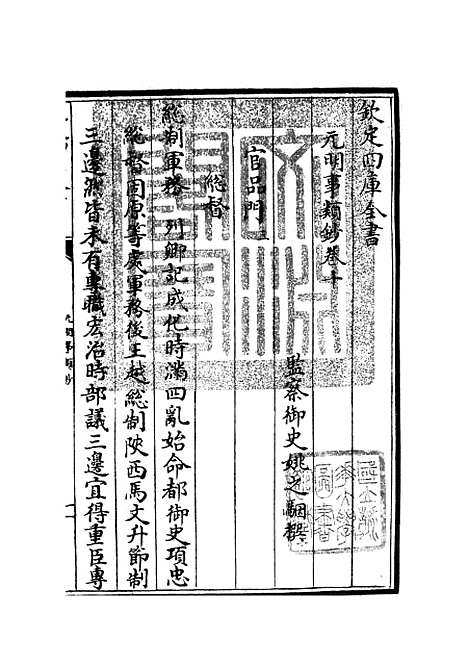 欽定四庫全書
元明事類鈔卷十
監察御史姚之駰撰
官品門二
總督
總制軍務 列卿記成化時滿四亂始命都御史項忠
總督固原等處軍務後王越總制陝西馬文升節制
三邊然皆未有專職宏治時部議三邊宜得重臣專